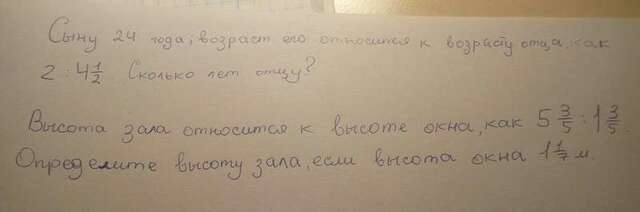 Сыну 24 года; возраст его относится к возрасту отца, как
2 : 4 1/2. Сколько лет отцу?
Высота зала относится к высоте окна, как 5 3/5 : 1 3/5.
Определите высоту зала, если высота окна 1 1/7 м.